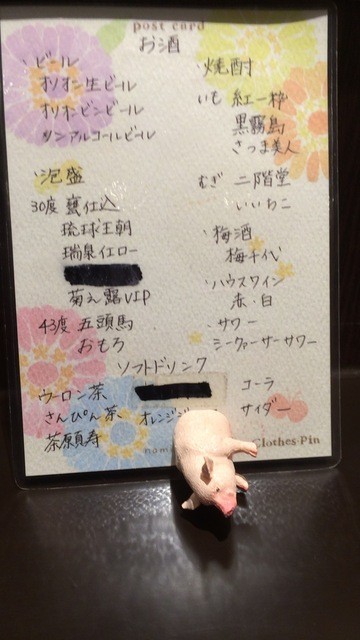 post card
お酒
・ビール
オリオン生ビール
オリオンビンビール
ノンアルコールビール
・泡盛
30度 甕仕込
琉球王朝
瑞泉イエロー
菊之露VIP
43度 五頭馬
おもろ
・焼酎
いも 紅一粋
黒霧島
さつま美人
むぎ 二階堂
いいちこ
・梅酒
梅千代
・ハウスワイン
赤・白
・サワー
シークァーサーサワー
ソフトドリンク
ウーロン茶
さんぴん茶
茶願寿
オレンジジ
コーラ
サイダー
Clothes-Pin